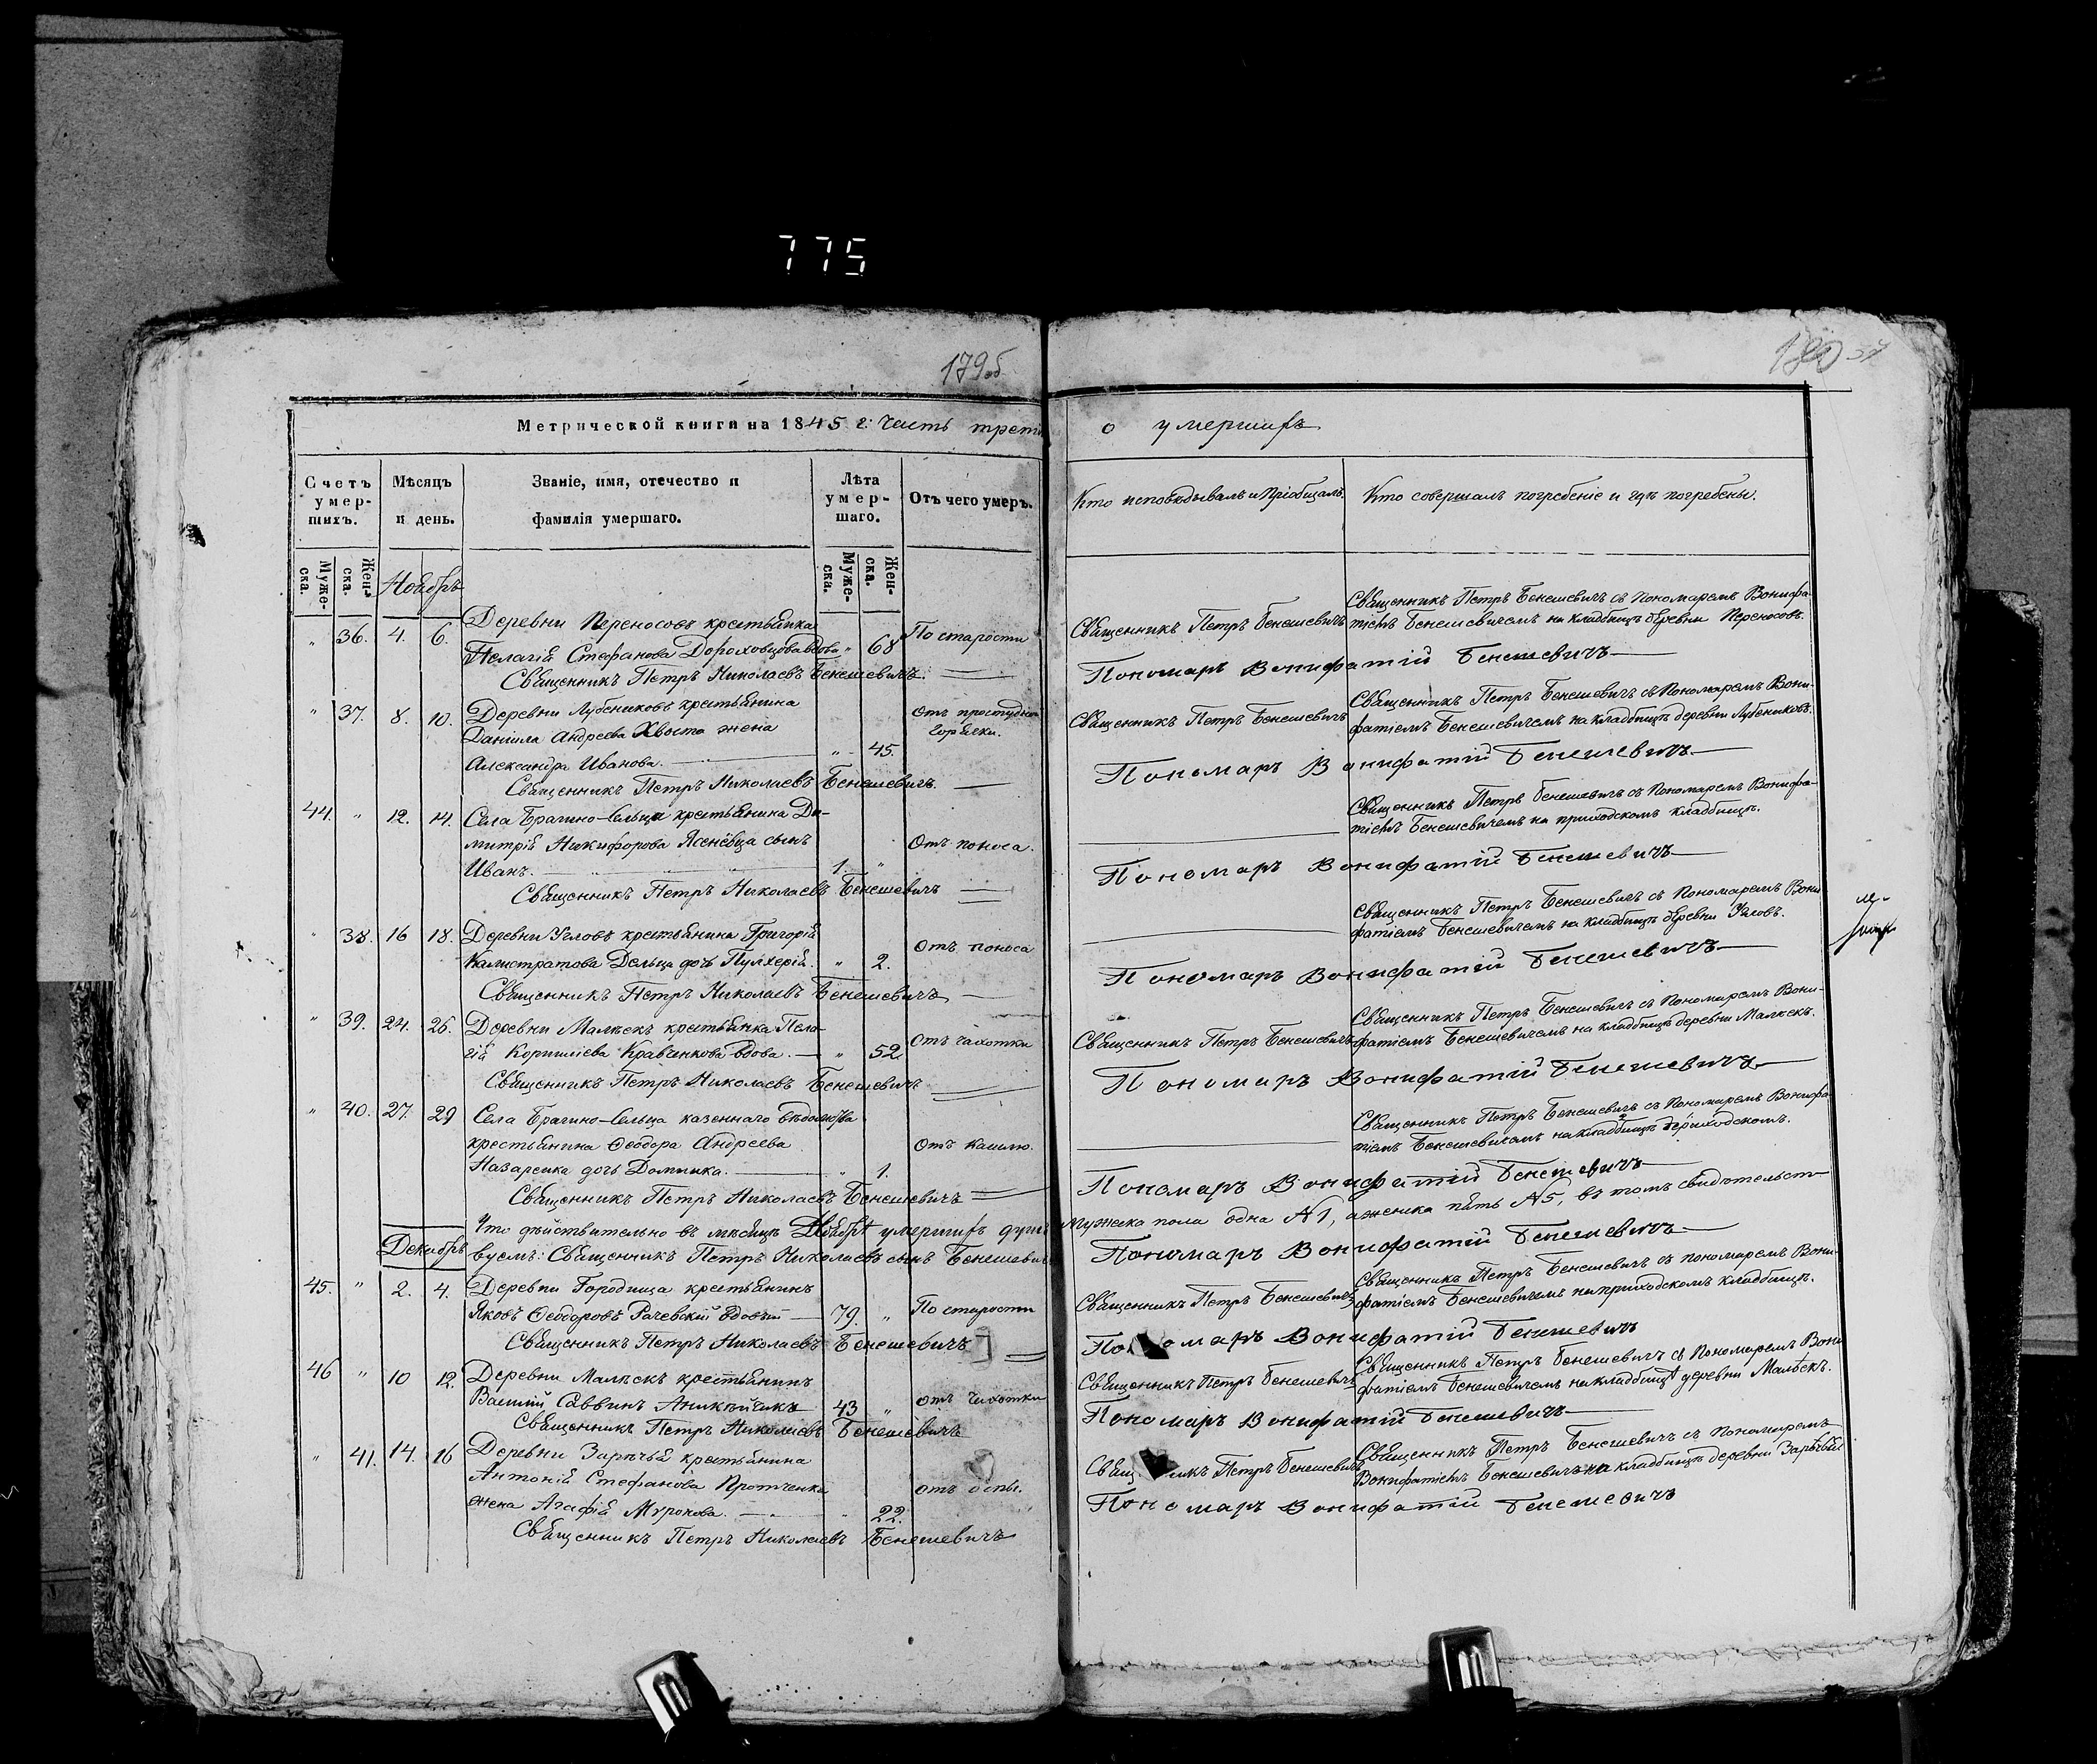 775
179 об
180
Метрической книги на 1845 г: Часть треть
о умершихъ
Счетъ умер-шихъ.
Мѣсяцъ и день.
Званіе, имя, отечество и фамилія умершаго.
Лѣта умер-шаго.
Отъ чего умеръ.
Кто исповѣдывалъ и пріобщалъ.
Кто совершалъ погребеніе и гдѣ погребены.
Муже-ска.
Жен-ска.
Ноябрь
Муже-ска.
Жен-ска.
Деревни Переносовъ крестьянка
" 36. 4. 6. Пелагія Стефанова Дороховцова вдова " 68 По старости
Священникъ Петръ Николаевъ Бенешевичъ.
Священникъ Петръ Бенешевичъ
Священникъ Петръ Бенешевичъ съ Пономаремъ Вонифа-
тіемъ Бенешевичемъ на кладбищѣ деревни Переносовъ.
Пономарь Вонифатій Бенешевичъ
" 37. 8. 10. Деревни Лубениковъ крестьянина
Даніила Андреева Хвоста жена
Александра Иванова. " 45.
Отъ простудной
горячки.
Священникъ Петръ Николаевъ Бенешевичъ.
Священникъ Петръ Бенешевичъ
Священникъ Петръ Бенешевичъ съ Пономаремъ Вони-
фатіемъ Бенешевичемъ на кладбищѣ деревни Лубениковъ.
Пономарь Вонифатій Бенешевичъ
44. " 12. 14. Села Брагино-Сельца крестьянина Ди-
митрія Никифорова Ясенёвца сынъ
Иванъ. 1 "
Отъ поноса.
Священникъ Петръ Николаевъ Бенешевичъ
Священникъ Петръ Бенешевичъ съ Пономаремъ Вонифа-
тіемъ Бенешевичемъ на приходскомъ кладбищѣ.
Пономарь Вонифатій Бенешевичъ
" 38. 16 18. Деревни Угловъ крестьянина Григорія
Калистратова Дельца дочь Пулхерія. " 2.
Отъ поноса
Священникъ Петръ Николаевъ Бенешевичъ
Священникъ Петръ Бенешевичъ съ Пономаремъ Вони
фатіемъ Бенешевичемъ на кладбищѣ деревни Угловъ.
Пономарь Вонифатій Бенешевичъ
" 39. 24. 26. Деревни Малѣекъ крестьянка Пела-
гія Корниліева Кравченкова вдова. " 52
Отъ чахотки
Священникъ Петръ Николаевъ Бенешевичъ
Священникъ Петръ Бенешевичъ
Священникъ Петръ Бенешевичъ съ Пономаремъ Вони-
фатіемъ Бенешевичемъ на кладбищѣ деревни Малѣекъ.
Пономарь Вонифатій Бенешевичъ
" 40. 27. 29 Села Брагино-Сельца казеннаго вѣдомства
крестьянина Ѳеодора Андреева
Назаренка дочь Домника. " 1.
Отъ кашлю.
Священникъ Петръ Николаевъ Бенешевичъ
Священникъ Петръ Бенешевичъ съ Пономаремъ Вонифа
тіемъ Бенешевичемъ на кладбищѣ приходскомъ.
Пономарь Вонифатій Бенешевичъ
Что дѣйствительно въ мѣсяцѣ Ноябрѣ умершихъ душъ мужеска пола одна №1, а женска пять №5, въ томъ свидѣтельст-
вуемъ: Священникъ Петръ Николаевъ сынъ Бенешевичъ
Пономарь Вонифатій Бенешевичъ
Декабрь
45. " 2. 4. Деревни Городища крестьянинъ
Яковъ Ѳеодоровъ Рачевскій вдовый 79. " По старости
Священникъ Петръ Николаевъ Бенешевичъ
Священникъ Петръ Бенешевичъ
Священникъ Петръ Бенешевичъ съ пономаремъ Вони-
фатіемъ Бенешевичемъ на приходскомъ кладбищѣ.
Пономарь Вонифатій Бенешевичъ
46 " 10 12. Деревни Малѣекъ крестьянинъ
Василій Саввинъ Аникѣйчикъ 43 " отъ чахотки
Священникъ Петръ Николаевъ Бенешевичъ
Священникъ Петръ Бенешевичъ
Священникъ Петръ Бенешевичъ съ Пономаремъ Вони
фатіемъ Бенешевичемъ на кладбищѣ деревни Малѣекъ.
Пономарь Вонифатій Бенешевичъ
" 41. 14. 16 Деревни Зарѣчья крестьянина
Антонія Стефанова Протченка
жена Агафія Миронова. " 22.
отъ оспы.
Священникъ Петръ Николаевъ Бенешевичъ
Священникъ Петръ Бенешевичъ
Священникъ Петръ Бенешевичъ съ пономаремъ
Вонифатіемъ Бенешевичемъ на кладбищѣ деревни Зарѣчья
Пономарь Вонифатій Бенешевичъ